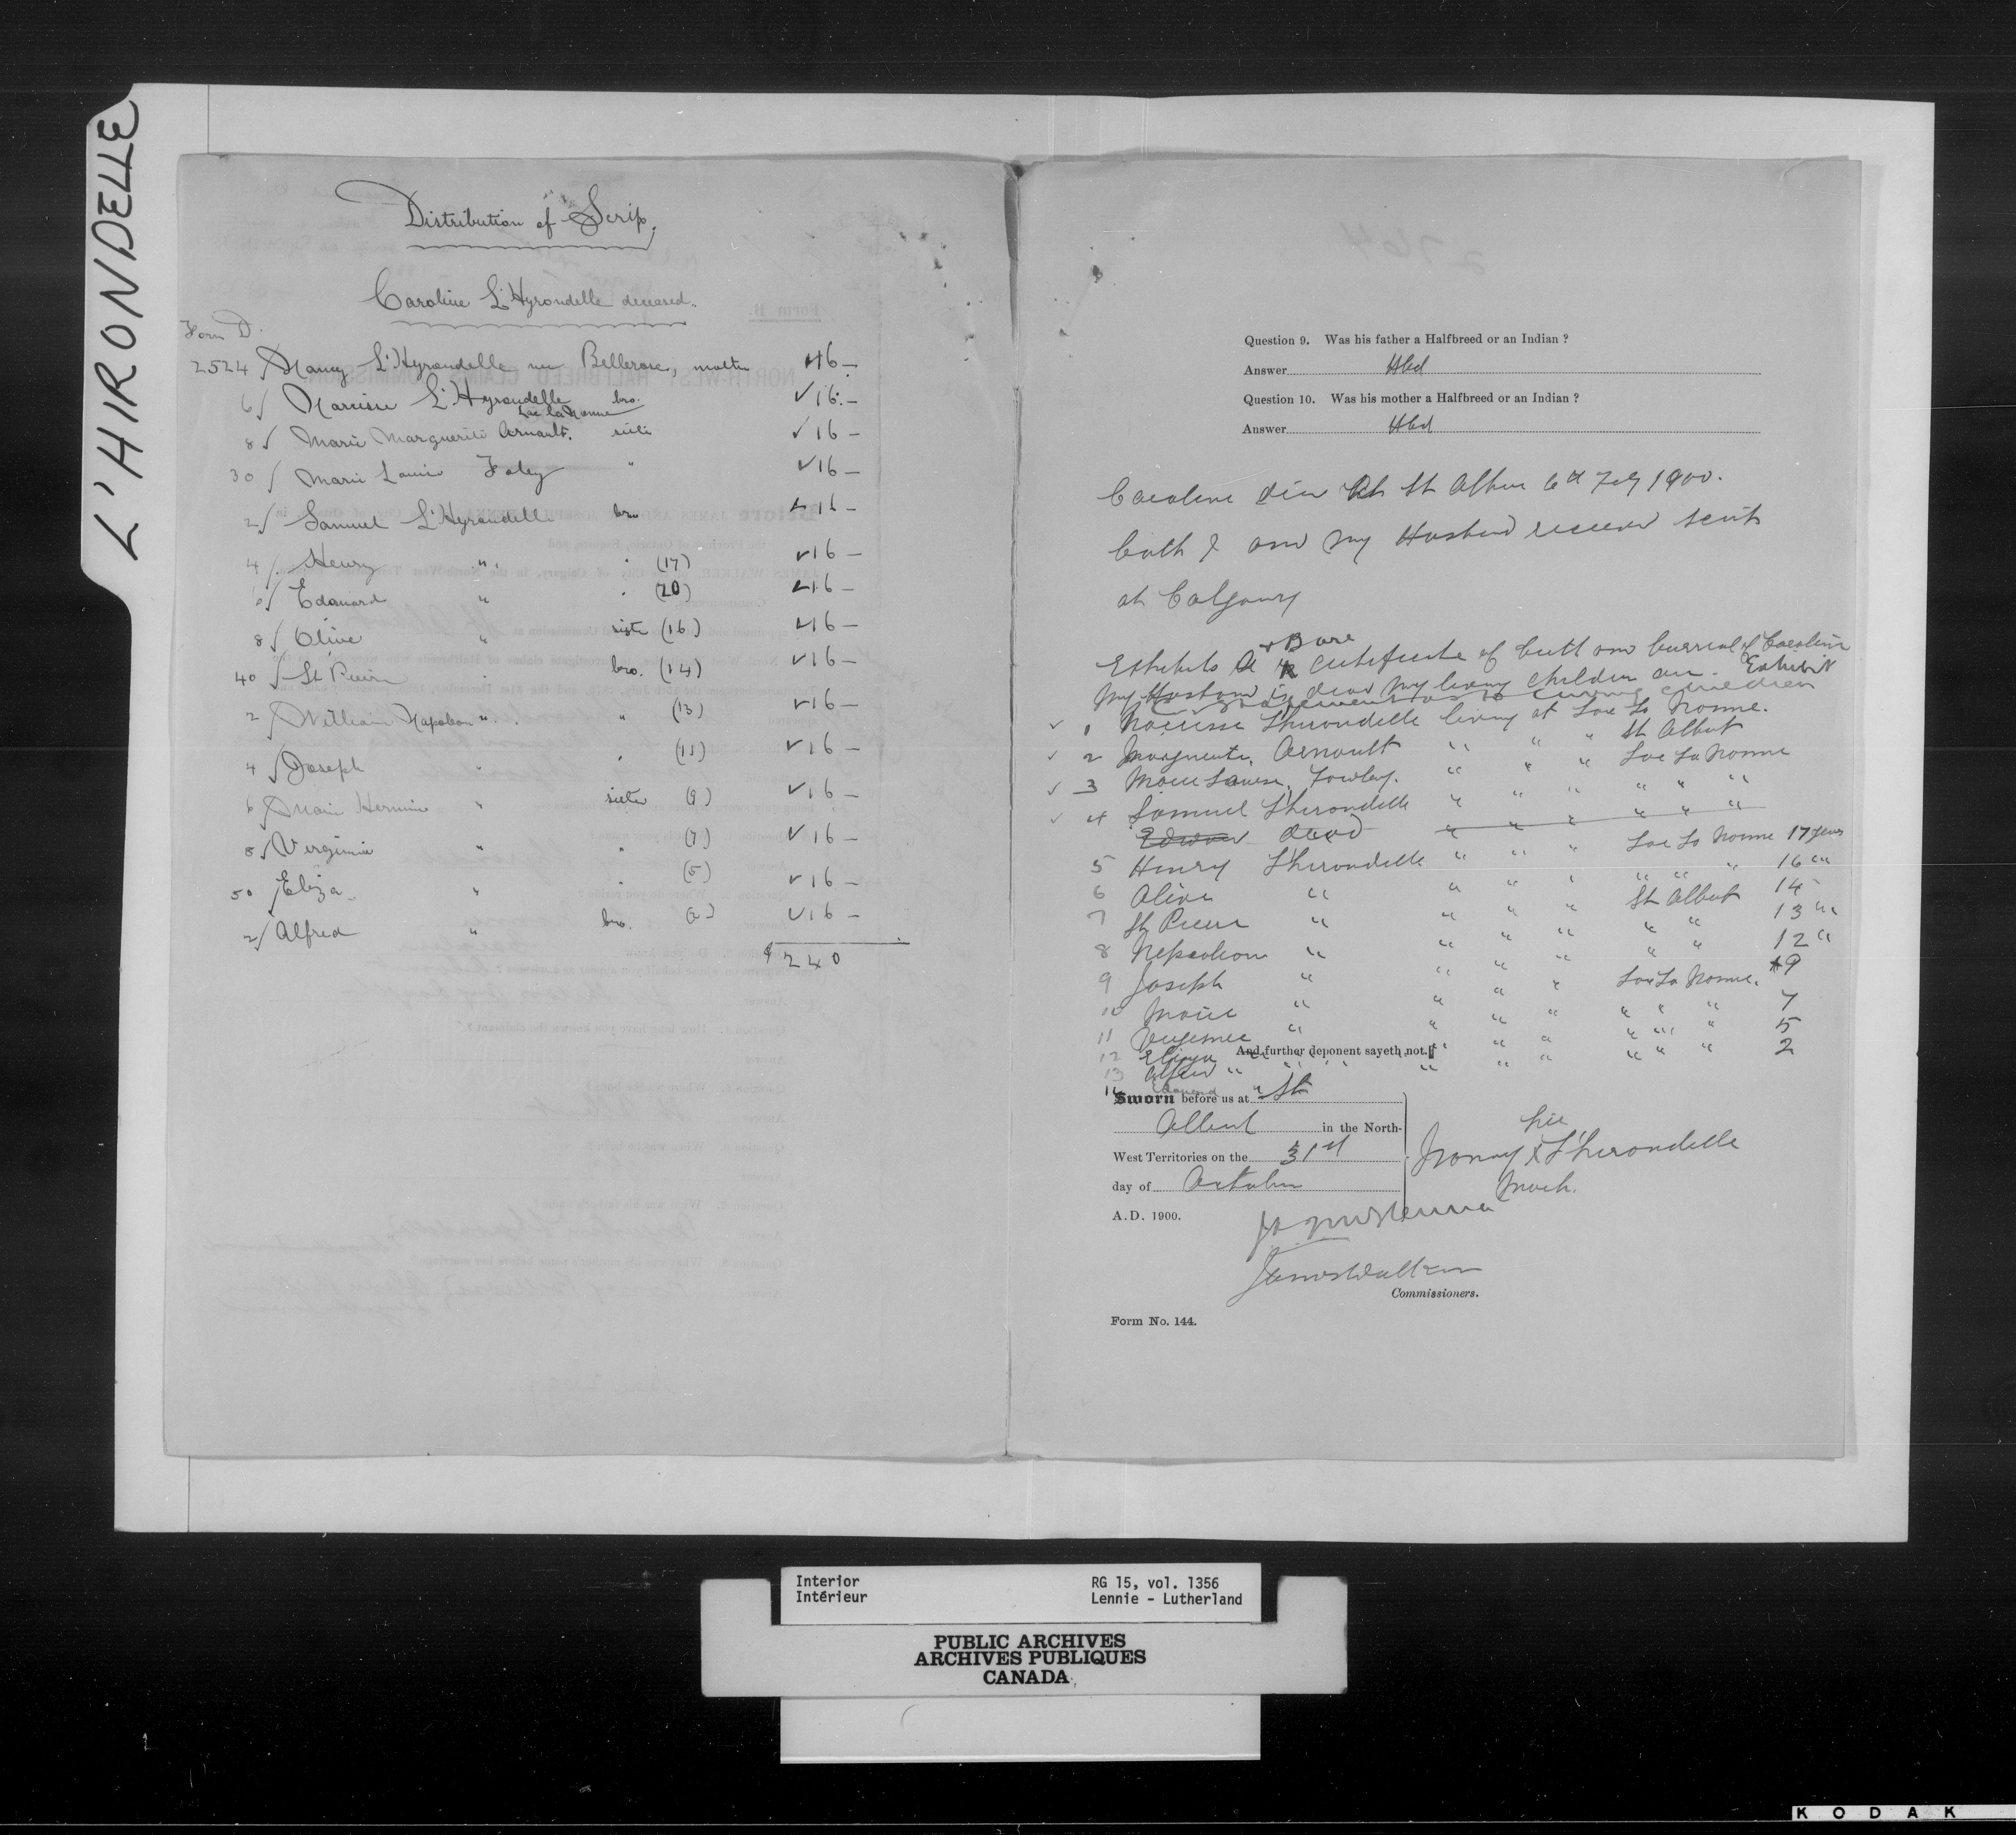 L'HIRONDELLE
Distribution of Scrip.
Caroline L'Hyrondelle deceased.
Form D.
2524 Nancy L'Hyrondelle nee Bellerose, mother 16 —
6 Narcisse L'Hyrondelle bro. 16 —
Lac la Nonne
8 Marie Marguerite Arnault. sister 16 —
30 Marie Louise Foley " 16 —
2 Samuel L'Hyrondelle bro 16 —
4 Henry " " (17) 16 —
6 Edouard " " (20) 16 —
8 Olive " sister (16) 16 —
40 St Pierre " bro. (14) 16 —
2 William Napoleon " " (13) 16 —
4 Joseph " " (11) 16 —
6 Marie Hermine " sister (9) 16 —
8 Virginie " " (7) 16 —
50 Eliza " " (5) 16 —
2 Alfred " bro. (2) 16 —
$240
Question 9. Was his father a Halfbreed or an Indian ?
Answer Hbd
Question 10. Was his mother a Halfbreed or an Indian ?
Answer Hbd
Caroline died at St Albert 6th Feby 1900.
both I and my Husband received scrip
at Calgary
Exhibits A & B are certificate of birth and burial of Caroline
My Husband is dead My living children are Exhibit
living children
1 Narcisse Lhirondelle living at Lac La Nonne.
2 Marguerite Arnault " " " St Albert
3 Marie Louise Fowley. " " " Lac La Nonne
4 Samuel Lhirondelle " " " " " "
Edward dead " " " " " "
5 Henry Lhirondelle " " " Lac La Nonne 17 years
6 Olive " " " " " " " 16 "
7 St Pierre " " " " St Albert 14
8 Napoleon " " " " " " 13 "
9 Joseph " " " " " " 12 "
10 Marie " " " " Lac La Nonne. 9
11 Virginie " " " " " " " 7
12 Eliza " " " " " " 5
And further deponent sayeth not.
13 Alfred " " " " " " " 2
14 Edouard "
Sworn before us at St
Albert in the North-
West Territories on the 31st
day of October
A.D. 1900.
her
Nancy X Lhirondelle
mark.
James Walker
Commissioners.
Form No. 144.
Interior
Intérieur
RG 15, vol. 1356
Lennie - Lutherland
PUBLIC ARCHIVES
ARCHIVES PUBLIQUES
CANADA
KODAK